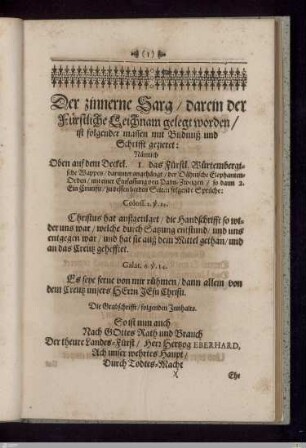 (1)
Der zinnerne Sarg / darein der
Fürstliche Leichnam gelegt worden /
ist folgender massen mit Bildnuß und
Schrifft gezieret:
Nämlich
Oben auf dem Deckel. 1. das Fürstl. Würtembergi-
sche Wappen / darunter angehängt / der Dähnische Elephanten-
Orden / mit einer Einfassung von Palm-Zweigen / so dann 2.
Ein Crucifix / zu dessen beeden Seiten folgende Sprüche:
Coloss. 2. ℣. 14.
Christus hat außgetilget / die Handschrifft so wi-
der uns war / welche durch Satzung entstund / und uns
entgegen war / und hat sie auß dem Mittel gethan / und
an das Creutz gehefftet.
Galat. 6. ℣. 14.
Es seye ferne von mir rühmen / dann allein von
dem Creutz unsers HErrn JEsu Christi.
Die Grabschrifft / folgenden Innhalts.
So ist nun auch
Nach GOttes Rath und Brauch
Der theure Landes-Fürst / Herr Hertzog EBERHARD,
Ach unser wehrtes Haupt /
Durch Todtes-Macht
Ehe